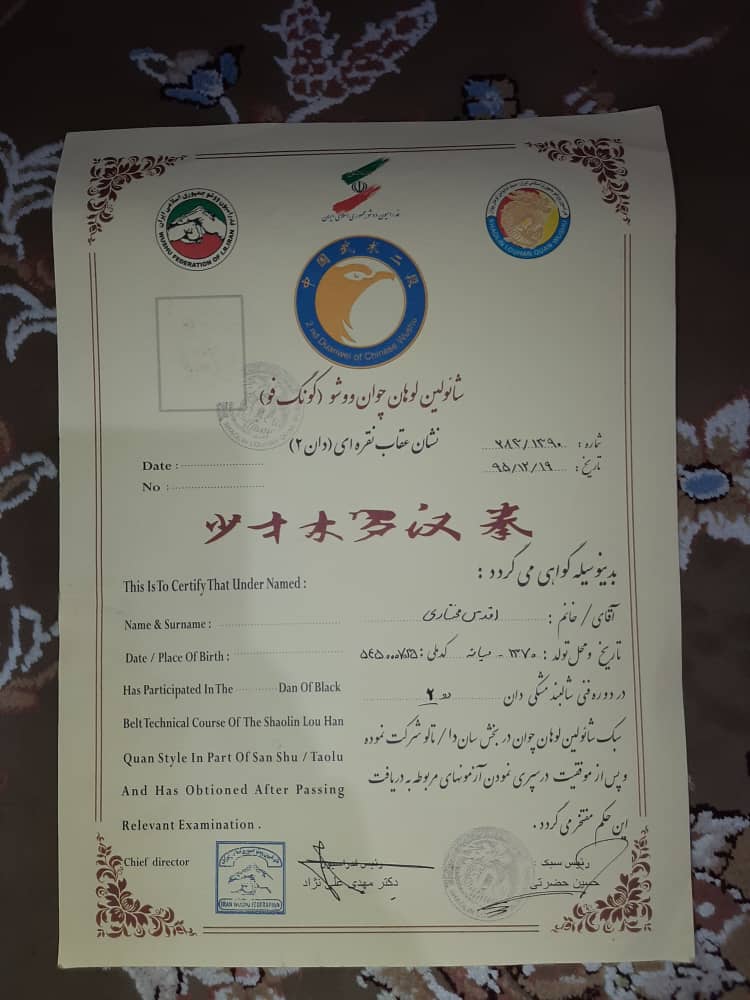 فدراسیون ووشو جمهوری اسلامی ایران
WUSHU FEDERATION OF I.R.IRAN
فدراسیون ووشو جمهوری اسلامی ایران
SHAOLIN LOUHAN QUAN WUSHU
中国武术二段
2 nd Duanwei of Chinese Wushu
شائولین لوهان چوان ووشو (کونگ فو)
نشان عقاب نقره ای (دان ۲)
شماره : ۲۸۴/۱۳۹۰
تاریخ : ۹۵/۱۲/۱۹
Date :
No :
少林罗汉拳
بدینوسیله گواهی می گردد :
This Is To Certify That Under Named :
آقای / خانم : اقدس مختاری
Name & Surname :
تاریخ و محل تولد : ۱۳۷۰ - میانه کدملی :
Date / Place Of Birth :
در دوره فنی شالبند مشکی دان دو ۲
Has Participated In The Dan Of Black
سبک شائولین لوهان چوان در بخش سان دا / تالو شرکت نموده
Belt Technical Course Of The Shaolin Lou Han
و پس از موفقیت در سپری نمودن آزمونهای مربوطه به دریافت
Quan Style In Part Of San Shu / Taolu
And Has Obtioned After Passing
این حکم مفتخر می گردد .
Relevant Examination .
Chief director
رئیس فدراسیون
دکتر مهدی علی نژاد
رئیس سبک
حسین حضرتی
IRAN WUSHU FEDERATION